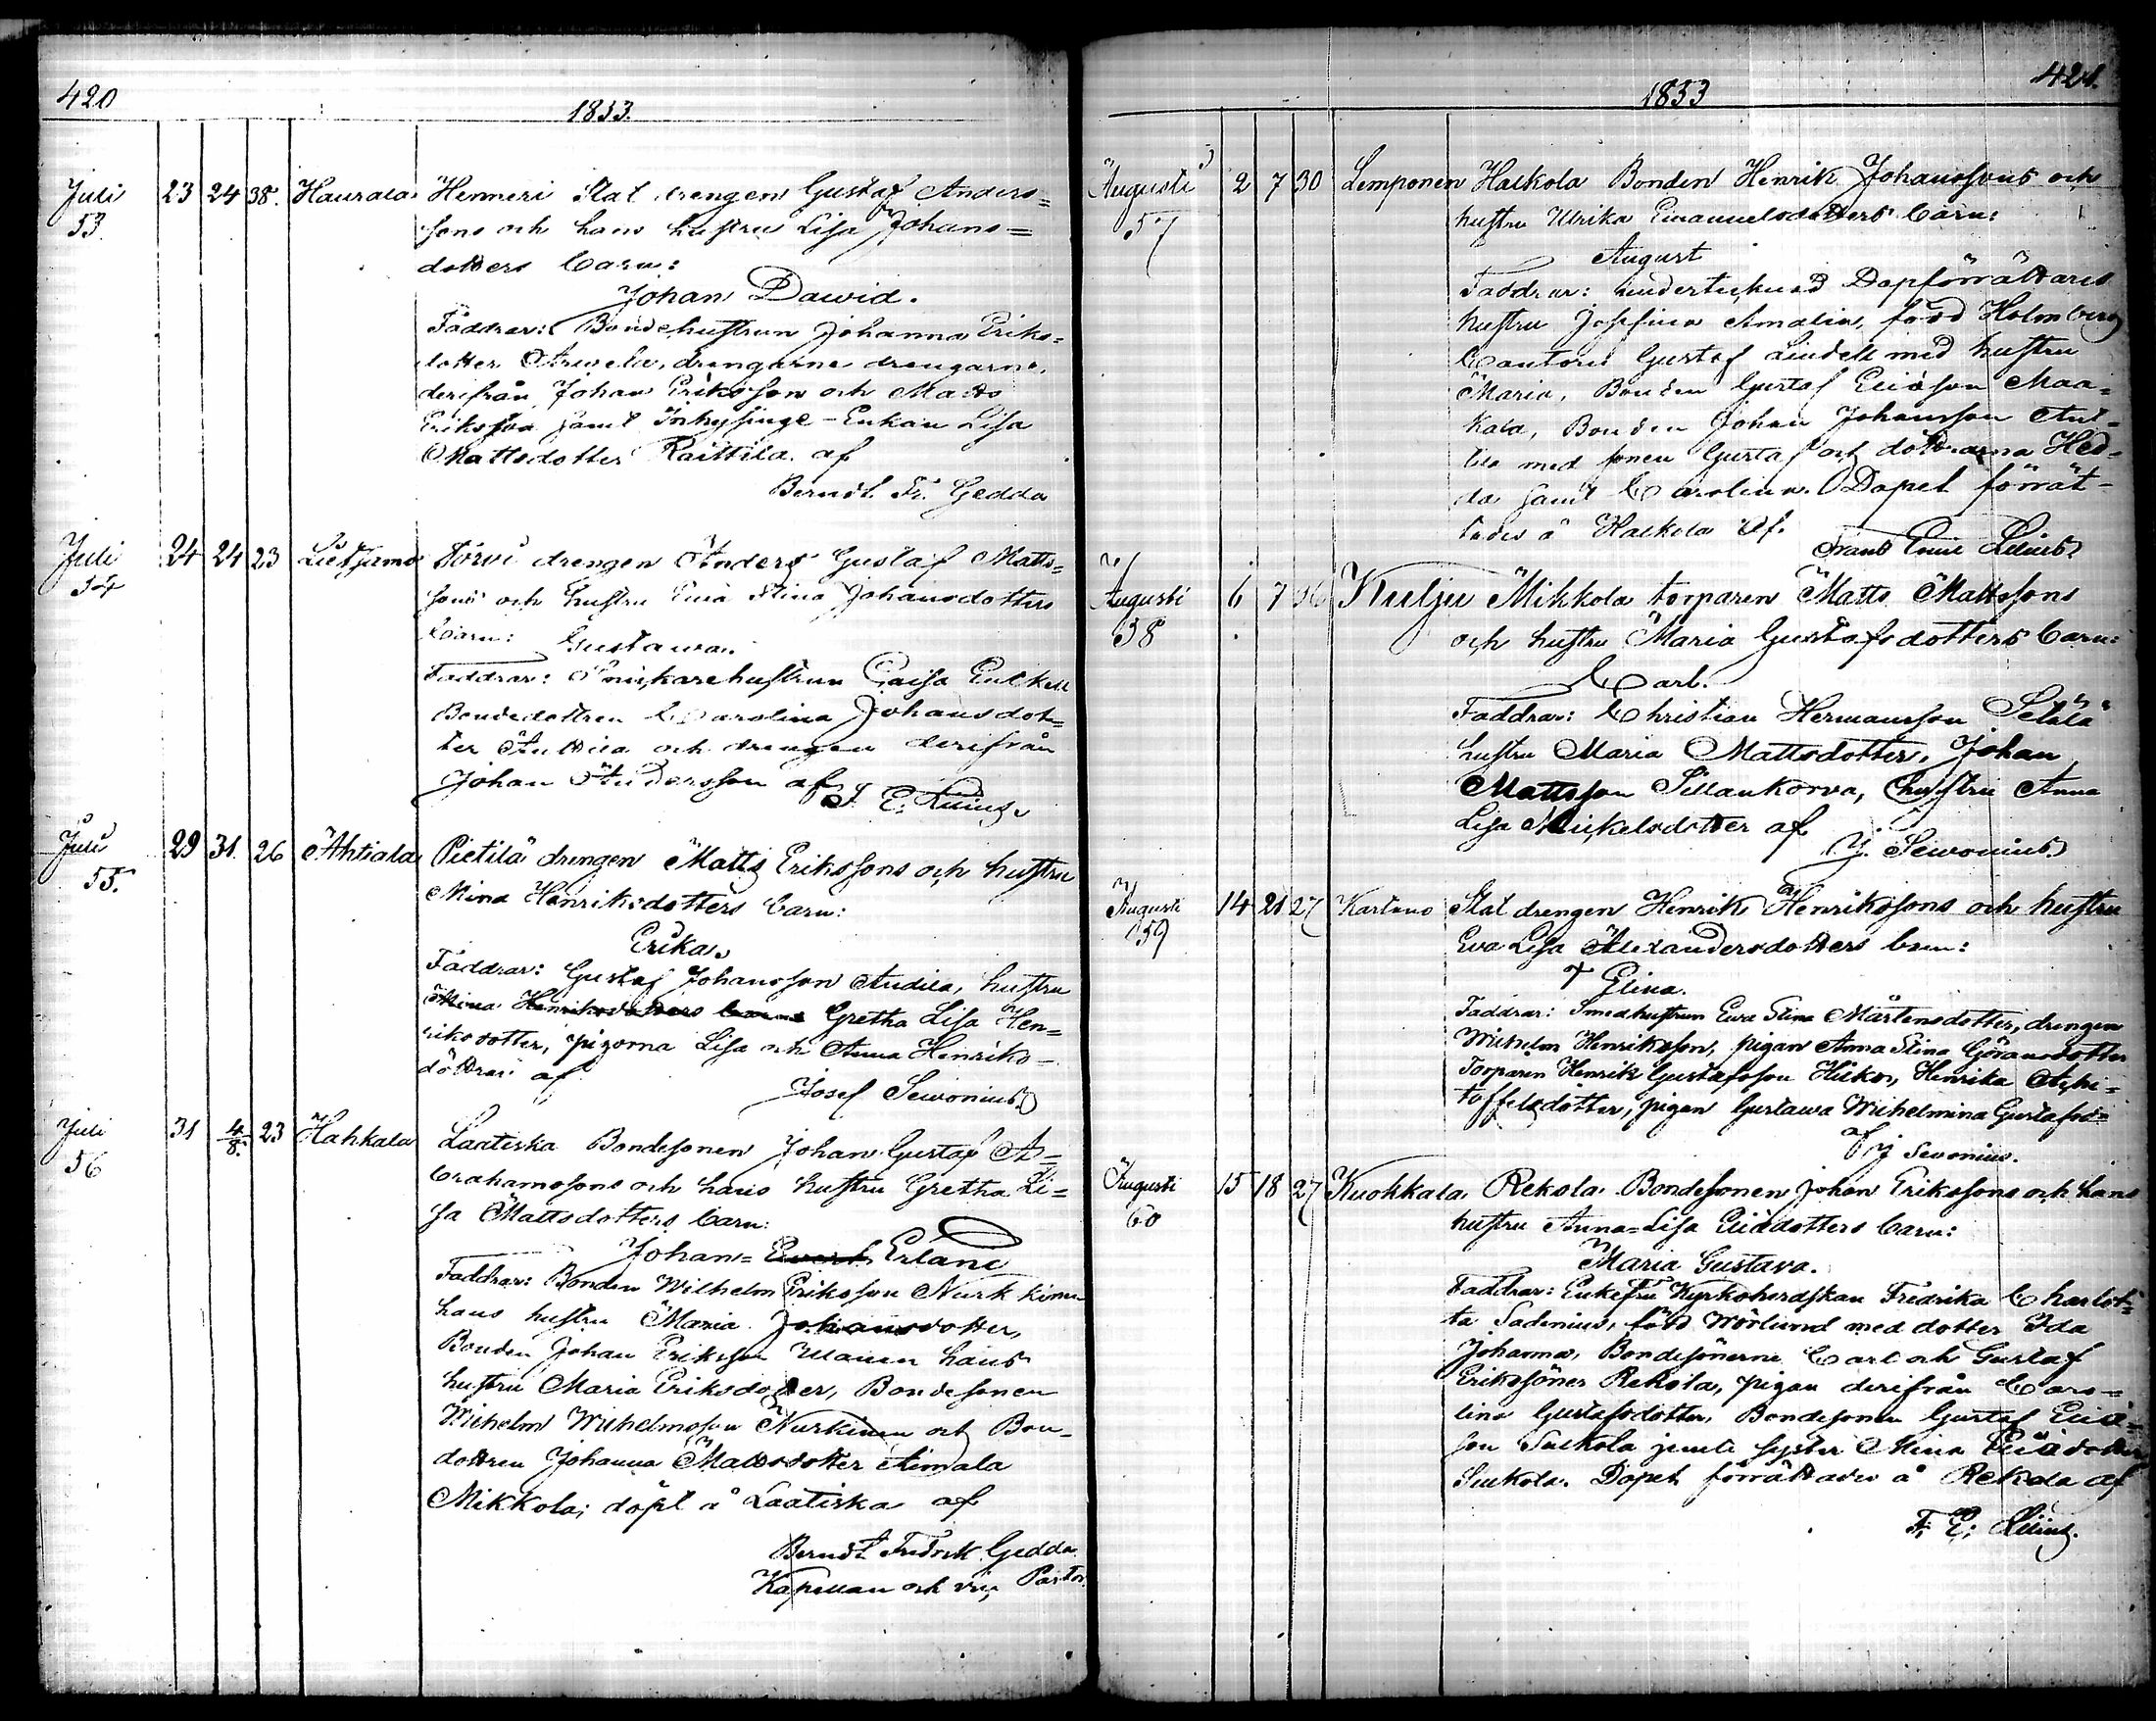 420
1853.
Juli 23 24 38. Haurala Henneri Stat drengen Gustaf Anders=
53. sons och hans hustru Lisa Johans=
dotters barn:
Johan Dawid.
Faddrar: Bondehustrun Johanna Eriks=
dotter drengarne drengarne
derifrån Johan Eriksson och Matts
Eriksson samt Inhysinge-Enkan Lisa
Mattsdotter Raittila af
Berndt Fr. Gedda
Juli 24 24 23 Lietzamo Torvi drengen Anders Gustaf Matts=
54 sons och hustru Ewa Stina Johansdotters
barn: Gustawa.
Faddrar: Snickarehustrun Caisa
Bondedottren Carolina Johansdot=
ter Anttila och drengen derifrån
Johan Andersson af
F. E. Lilius.
Juli 29 31. 26 Ahtiala Pietilä drengen Matts Erikssons och hustru
55. Mina Henriksdotters barn:
Erika.
Faddrar: Gustaf Johansson Andila, hustru
Mina Henriksdotters barn Gretha Lisa Hen=
riksdotter, pigorna Lisa och Anna Henriks-
döttrar af
Josef Sewonius.
Juli 31 4/8. 23 Hahkala Laatiska Bondesonen Johan Gustaf A=
56 brahamssons och hans hustru Gretha Li=
sa Mattsdotters barn:
Johan= Evert Erland
Faddrar: Bonden Wilhelm Eriksson Nurkkinen
hans hustru Maria Johansdotter,
Bonden Johan Eriksson hans
hustru Maria Eriksdotter, Bondesonen
Wilhelm Wilhelmsson Nurkinen och Bon-
dottren Johanna Mattsdotter Aimala
Mikkola; döpt å Laatiska af
Berndt Fredrik Gedda
Kapellan och vic. Pastor.
1853
421.
Augusti 2 7 30 Lemponen Halkola Bonden Henrik Johanssons och
57 hustru Ulrika Emanuelsdotters barn:
August
Faddrar: undertecknad Dopförrättares
hustru Josefina Amalia, född Holmberg
Cantorn Gustaf Lindell med hustru
Maria, Bonden Gustaf Eliasson Maa-
kala, Bonden Johan Johansson Ant-
tila med sonen Gustaf och döttrarna Hed-
da samt Carolina. Dopet förrät-
tades å Halkola af.
Frans Emil Lilius.
Augusti 6 7 36 Kulju Mikkola torparen Matts Mattssons
58 och hustru Maria Gustafsdotters barn:
Carl.
Faddrar: Christian Hermansson Setälä
hustru Maria Mattsdotter, Johan
Mattsson Sillankorva, hustru Anna
Lisa Mickelsdotter af
J. Sewonius.
Augusti 14 21 27 Kartano Stat drengen Henrik Henrikssons och hustru
59 Ewa Lisa Alexandersdotters barn:
Elina.
Faddrar: Smedhustrun Ewa Stina Mårtensdotter, drengen
Wilhelm Henriksson, pigan Anna Stina Göransdotter
Torparen Henrik Gustafsson Hilko, Henrika Achi-
toffelsdotter, pigan Gustawa Wilhelmina Gustafsd=
af J. Sevonius.
Augusti 15 18 27 Kuokkala Rekola Bondesonen Johan Erikssons och hans
60 hustru Anna=Lisa Eliædotters barn:
Maria Gustava.
Faddrar: Enkefru Kyrkoherdskan Fredrika Charlot=
ta Sadenius, född Wörlund med dotter Ida
Johanna, Bondesönerne Carl och Gustaf
Erikssöner Rekola, pigan derifrån Caro=
lina Gustafsdotter, Bondesonen Gustaf Eliæ=
son Suckola jemte syster Mina Eliædotter
Suckola. Dopet förrättades å Rekola af
F. E. Lilius.